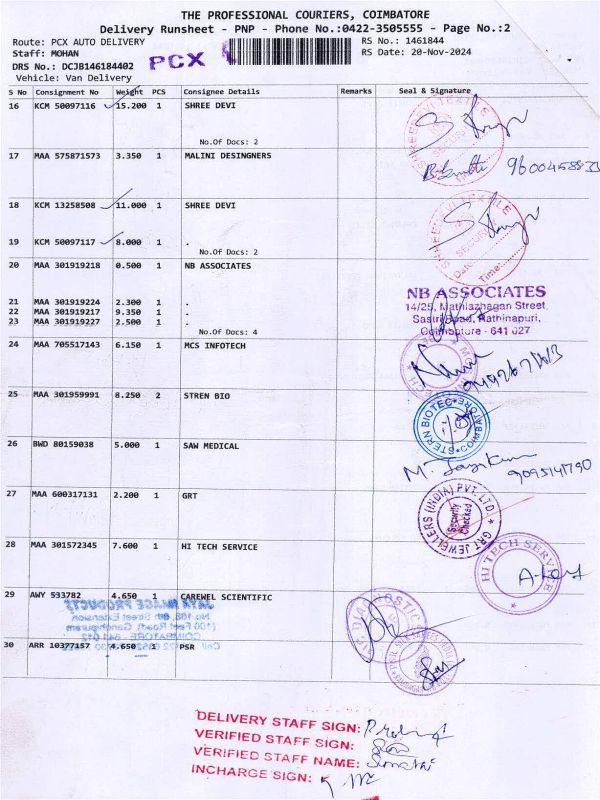 THE PROFESSIONAL COURIERS, COIMBATORE
Delivery Runsheet - PNP - Phone No.:0422-3505555 - Page No.:2
Route: PCX AUTO DELIVERY
Staff: MOHAN
DRS No.: DCJB146184402
Vehicle: Van Delivery
PCX
RS No.: 1461844
RS Date: 20-Nov-2024
S No Consignment No Weight PCS Consignee Details Remarks Seal & Signature
16 KCM 50097116 15.200 1 SHREE DEVI
No.Of Docs: 2
17 MAA 575871573 3.350 1 MALINI DESINGNERS
18 KCM 13258508 11.000 1 SHREE DEVI
19 KCM 50097117 8.000 1 .
No.Of Docs: 2
20 MAA 301919218 0.500 1 NB ASSOCIATES
21 MAA 301919224 2.300 1 .
22 MAA 301919217 9.350 1 .
23 MAA 301919227 2.500 1 .
No.Of Docs: 4
NB ASSOCIATES
14/25, Mathiazhagan Street,
Sastri Road, Rathinapuri,
Coimbatore - 641 027
24 MAA 705517143 6.150 1 MCS INFOTECH
25 MAA 301959991 8.250 2 STREN BIO
STERN BIOTEC COIMBATORE
26 BWD 80159038 5.000 1 SAW MEDICAL
9095141790
27 MAA 600317131 2.200 1 GRT
GRT JEWELLERS (INDIA) PVT. LTD.
Security Checked
28 MAA 301572345 7.600 1 HI TECH SERVICE
HI TECH SERVICE
29 AWY 533782 4.650 1 CAREWEL SCIENTIFIC
30 ARR 10377157 4.650 1 PSR
DELIVERY STAFF SIGN:
VERIFIED STAFF SIGN:
VERIFIED STAFF NAME:
INCHARGE SIGN: